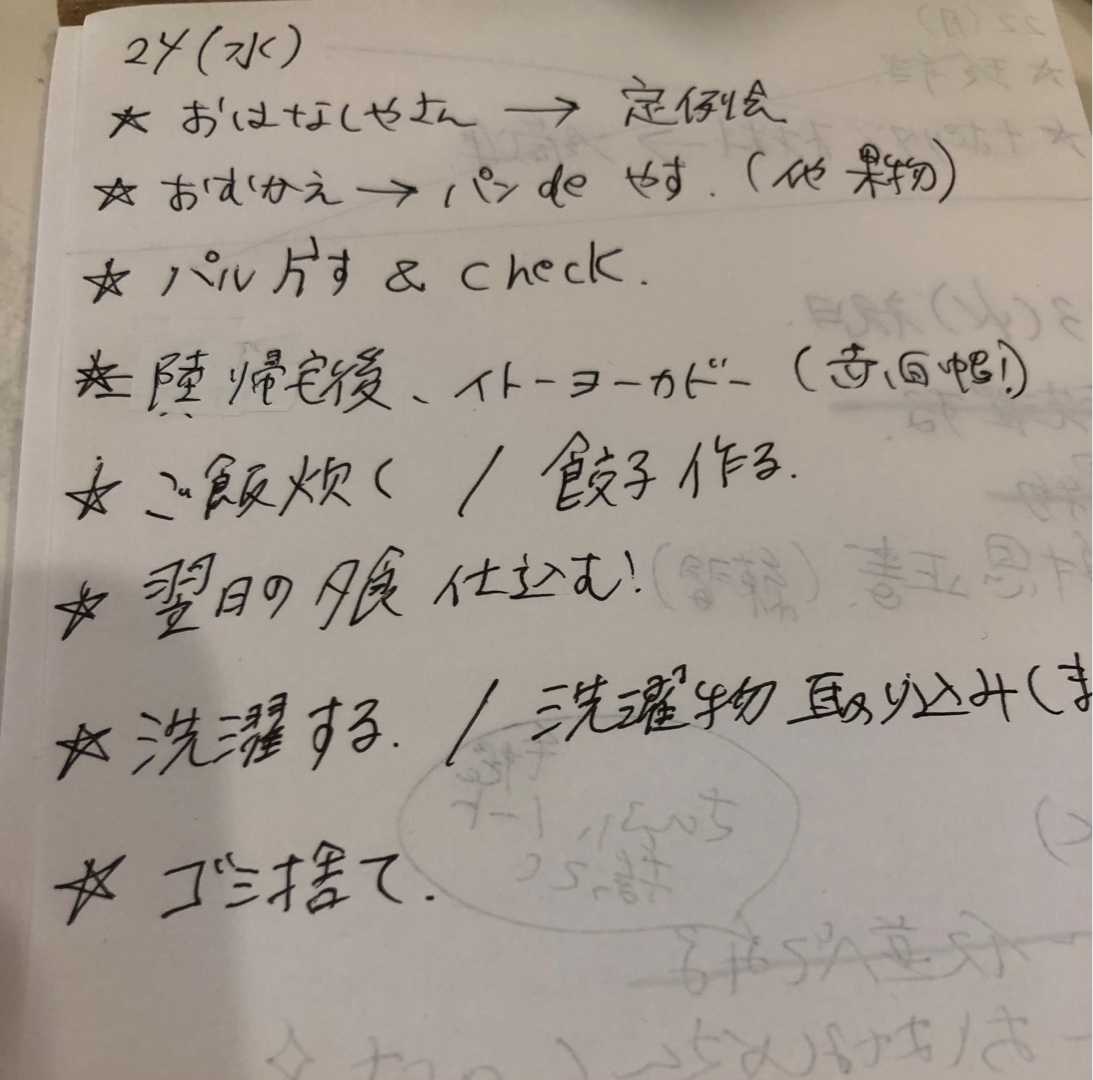 24(水)
☆ おはなしやさん → 定例会
☆ おむかえ → パンde やす.(他 果物)
☆ パル片す & check.
☆ 帰宅後、イトーヨーカドー(赤白帽!)
☆ ご飯炊く / 餃子作る.
☆ 翌日の夕食 仕込む!
☆ 洗濯する. / 洗濯物 取り込み(ま
☆ ゴミ捨て.